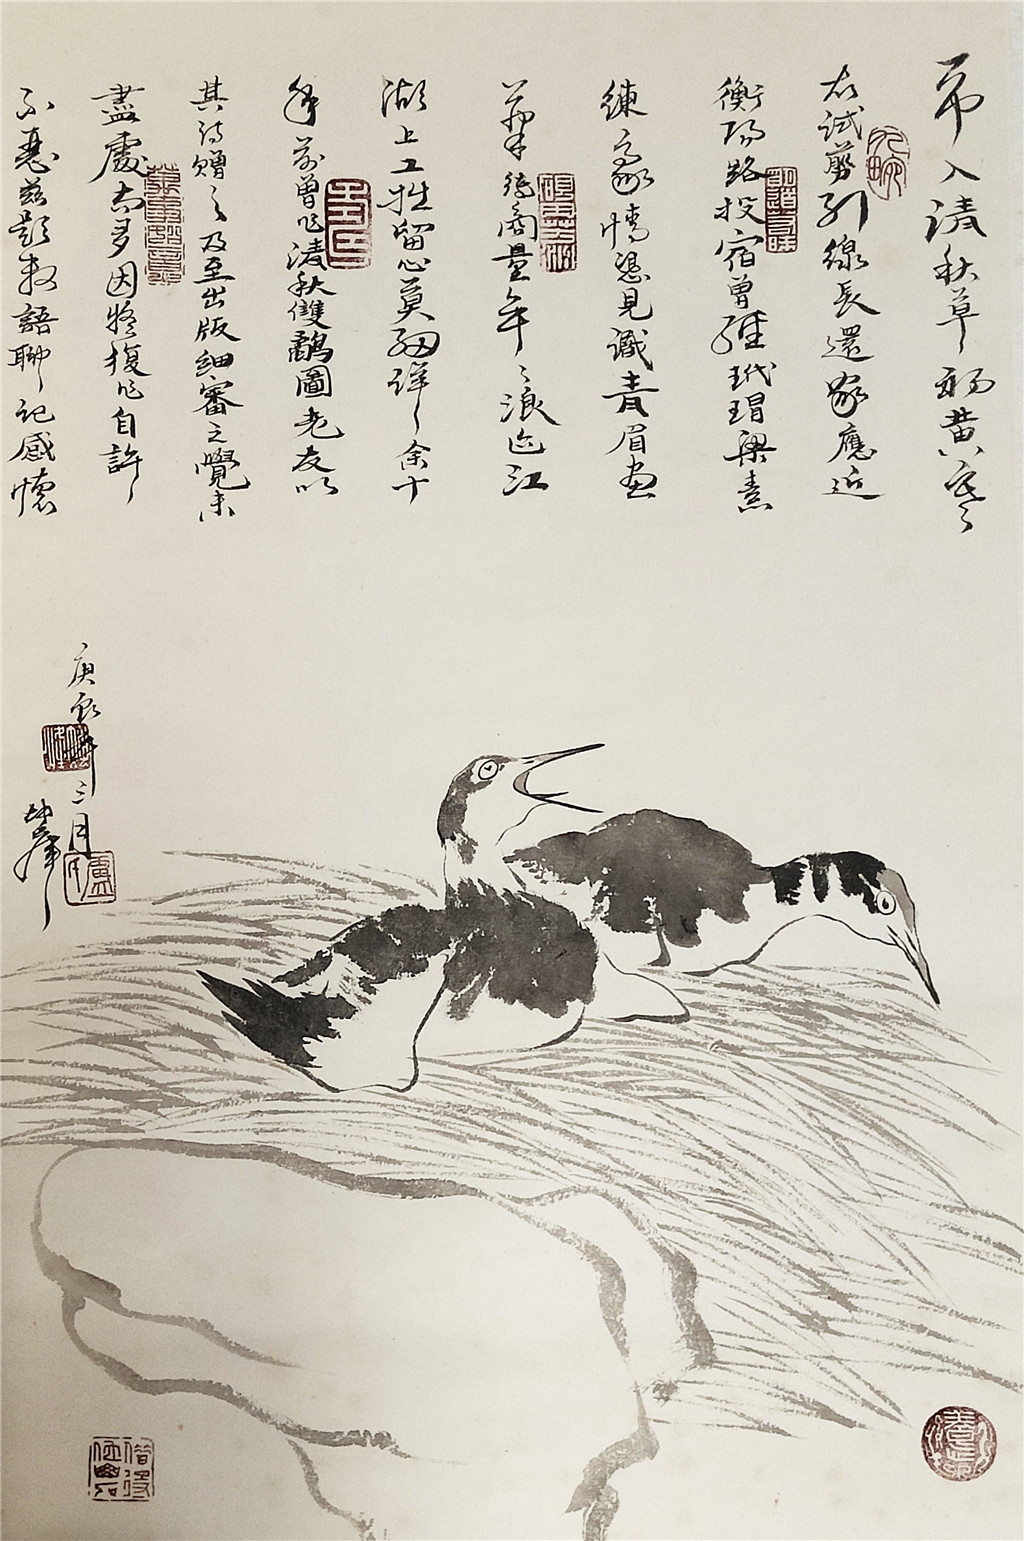 入清秋草〻 黄
試剪引線長還家應近
衡陽路投宿曾經玳瑁梁素
練家情 見識青眉畫
筆 商量年〻浪迹江
湖上工拙留心莫細詳〻余十
年前曾作清秋雙鷸圖老友以
其詩贈之及至出版細審之覺未
盡處尚多因將復作自許〻
不惡茲題數語聊記感懷
庚辰年三月
坤峯